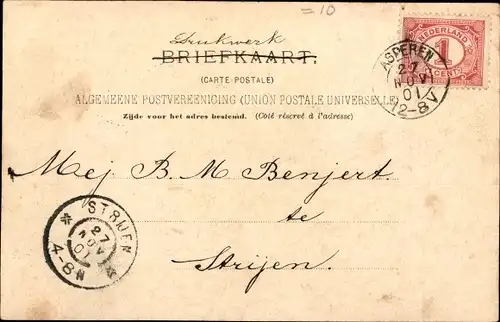 =10
Drukwerk
BRIEFKAART.
(CARTE-POSTALE)
ALGEMEENE POSTVEREENIGING (UNION POSTALE UNIVERSELLE)
Zijde voor het adres bestemd. (Côté réservé à l'adresse)
NEDERLAND
1
CENT
ASPEREN
27
NOV
01
12-8V
Mej. B. M Benjert.
te
Strijen.
STRIJEN
27
NOV
01
4-8N